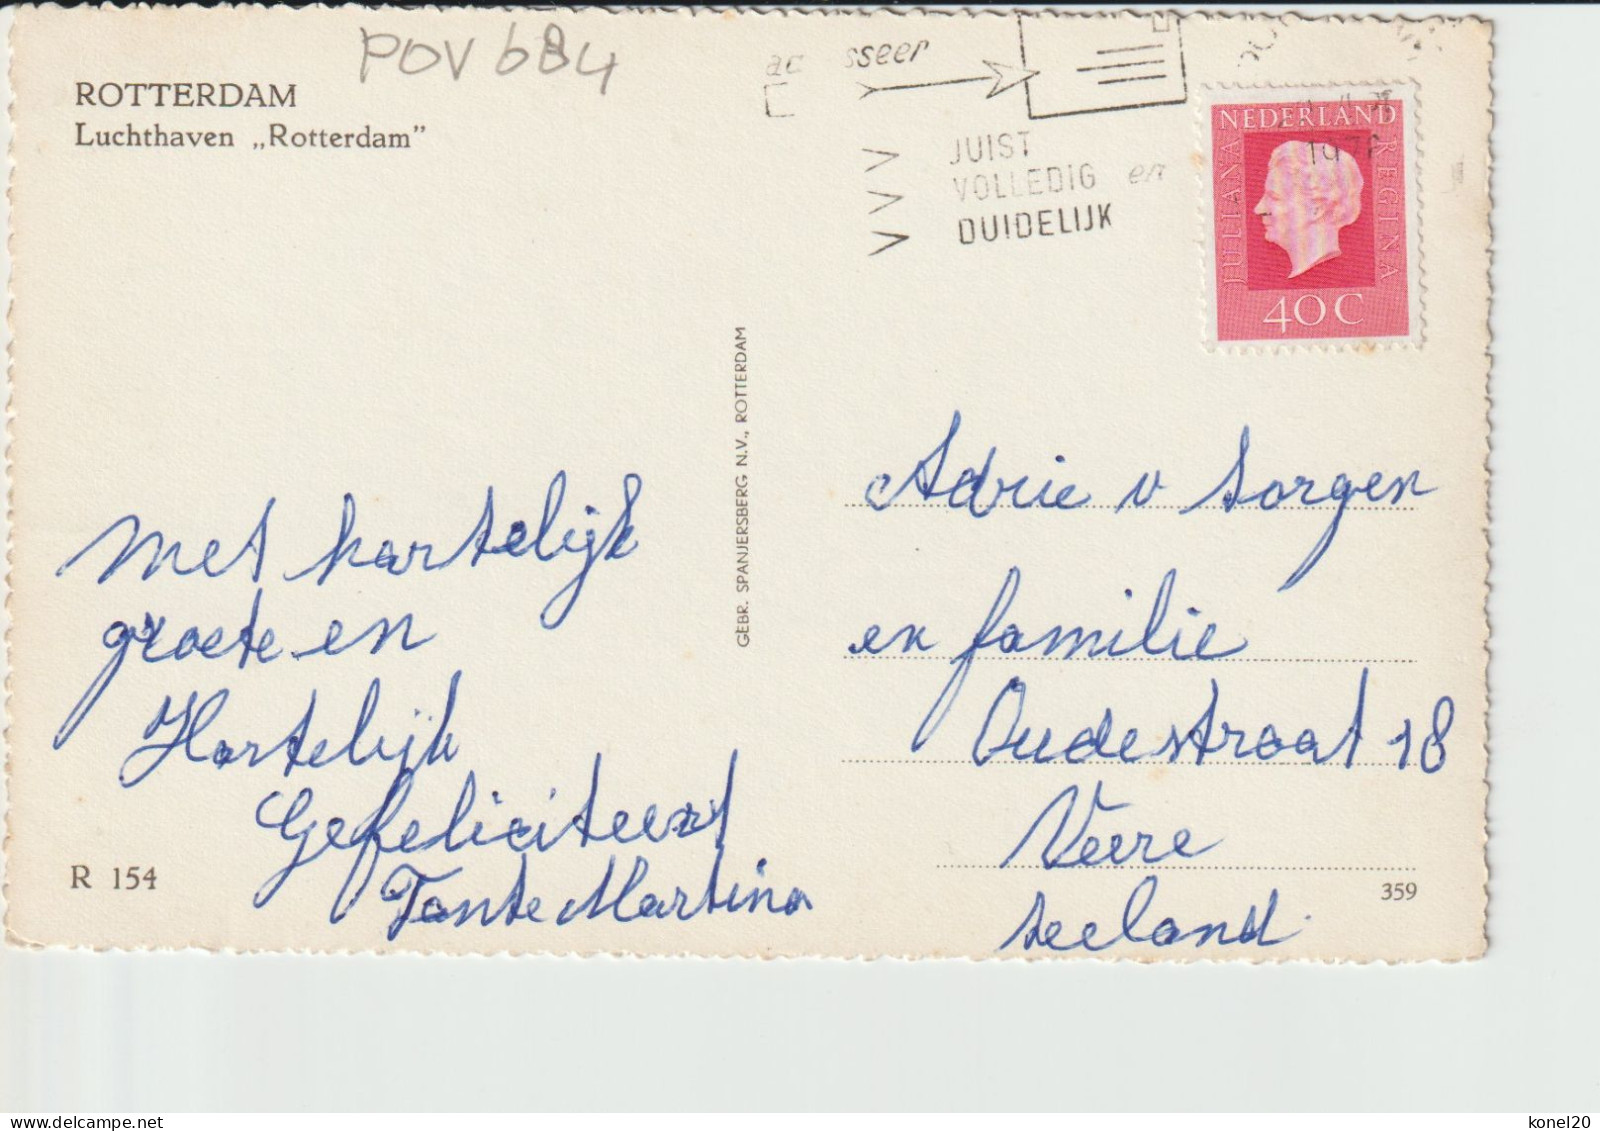 POV 684
ROTTERDAM
Luchthaven „Rotterdam"
JUIST
VOLLEDIG en
DUIDELIJK
NEDERLAND
JULIANA
REGINA
40 C
GEBR. SPANJERSBERG N.V., ROTTERDAM
Met hartelijk
groete en
Hartelijk
Gefeliciteerd
Tante Martina
Adrie v Sorgen
en familie
Oudestraat 18
Veere
Zeeland
R 154
359
konel20